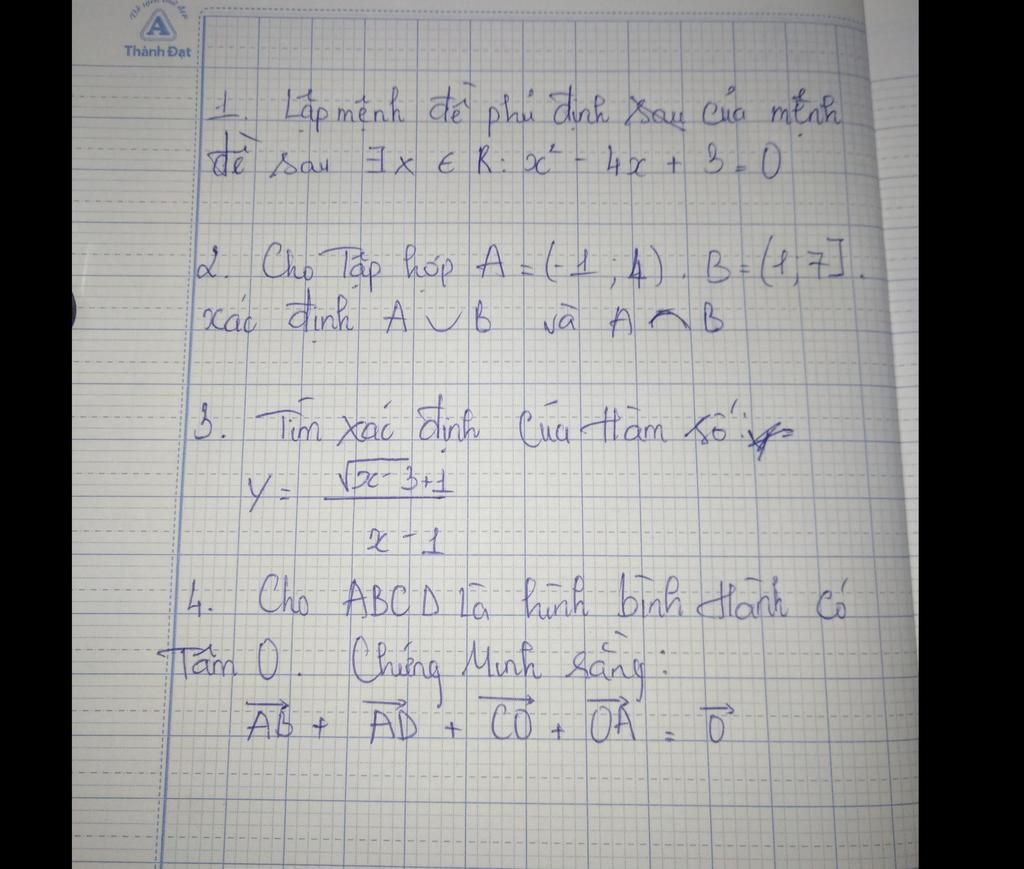 Thành Đạt
1. Lập mệnh đề phủ định sau của mệnh
đề sau ∃x ∈ R: x² - 4x + 3 = 0
2. Cho Tập hợp A = (-1 ; 4). B = (1, 7].
xác định A ∪ B và A ∩ B
3. Tìm xác định của Hàm số:
y = (√(x-3)+1)/(x - 1)
4. Cho ABCD là hình bình Hành có
Tâm O. Chứng Minh rằng:
\vec{AB} + \vec{AD} + \vec{CO} + \vec{OA} = \vec{0}